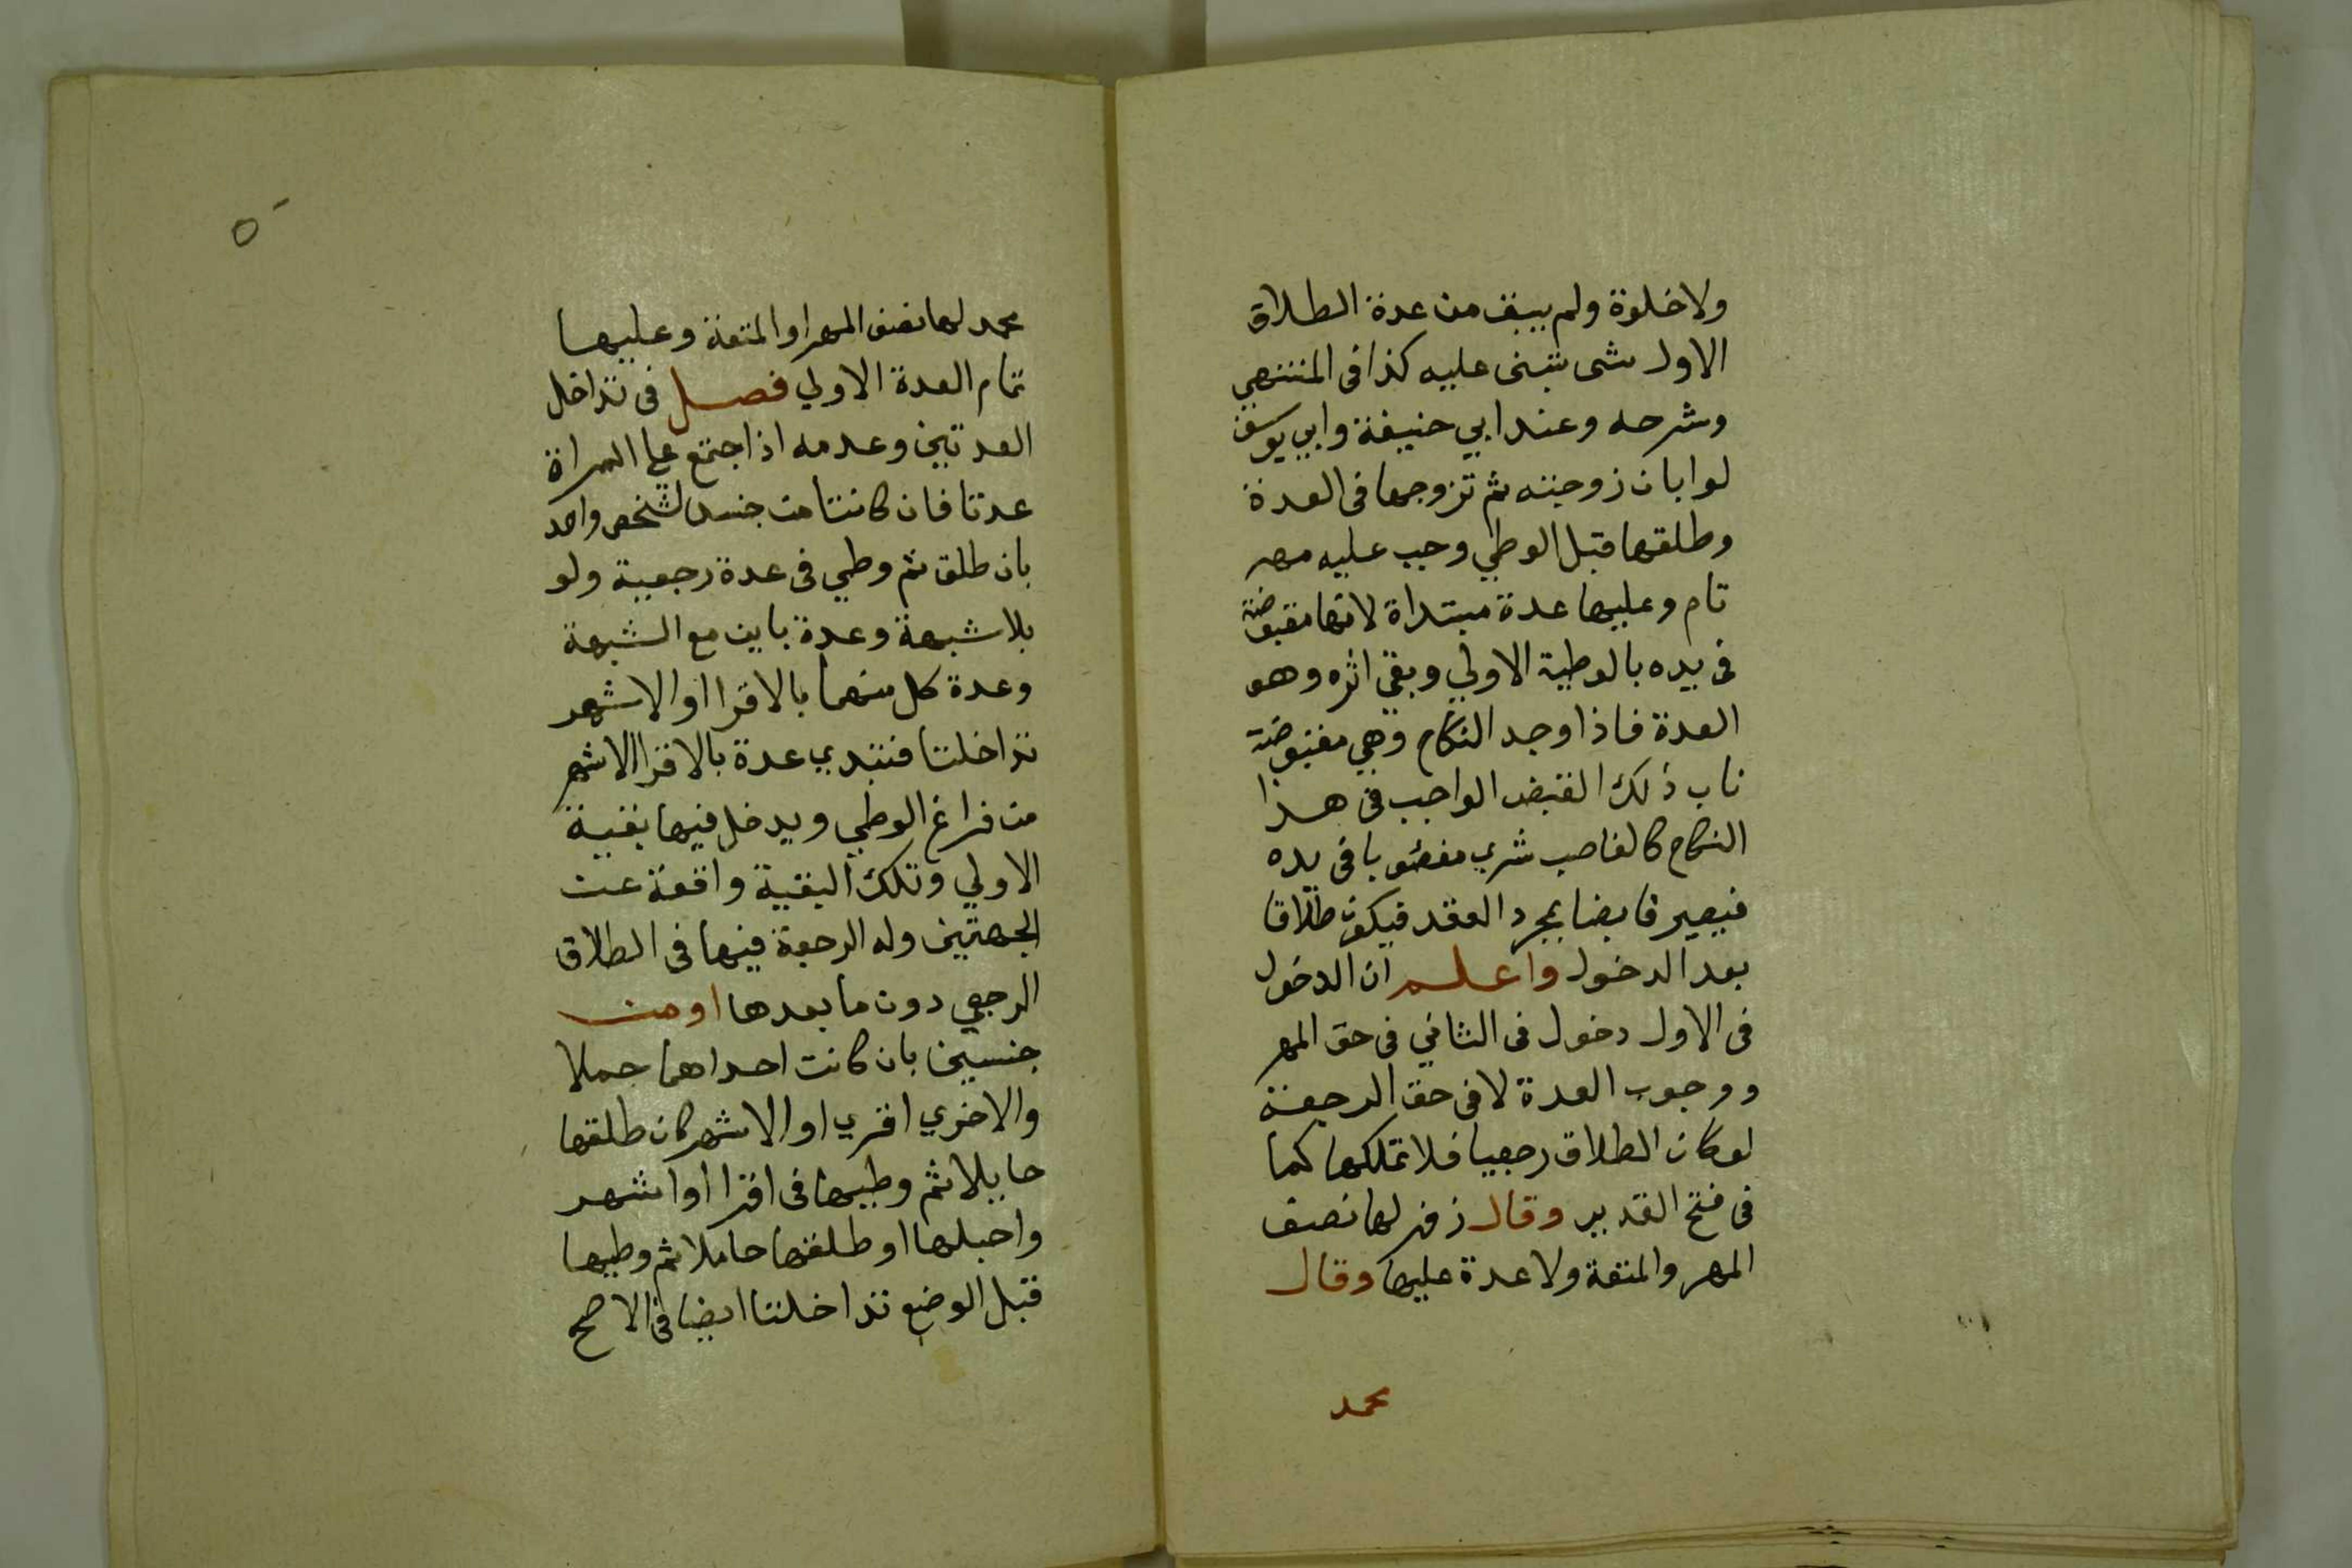 ولا خلوة ولم يبق من عدة الطلاق
الاول شى تبنى عليه كذا فى المنتهي
وشرحه وعند ابي حنيفة وابي يوسف
لو ابان زوجته ثم تزوجها فى العدة
وطلقها قبل الوطي وجب عليه مهر
تام وعليها عدة مبتداة لانها مقبوضة
فى يده بالوطية الاولي وبقي اثره وهو
العدة فاذا وجد النكاح وهي مقبوضة
ناب ذلك القبض الواجب فى هذا
النكاح كالغاصب شري مغصوبا فى يده
فيصير قابضا بمجرد العقد فيكون طلاقا
بعد الدخول واعلم ان الدخول
فى الاول دخول فى الثاني فى حق المهر
ووجوب العدة لا فى حق الرجعة
لو كان الطلاق رجعيا فلا تملكها كما
فى فتح القدير وقال زفر لها نصف
المهر والمتعة ولا عدة عليها وقال
محمد
٥
محمد لها نصف المهر او المتعة وعليها
تمام العدة الاولي فصل فى تداخل
العدتين وعدمه اذا اجتمع على المراة
عدتا فان كانتا من جنس لشخص واحد
بان طلق ثم وطي فى عدة رجعية ولو
بلا شبهة وعدة باين مع الشبهة
وعدة كل منهما بالاقرا او الاشهر
تداخلتا فتبتدي عدة بالاقرا الاشهر
من فراغ الوطي ويدخل فيها بقية
الاولي وتلك البقية واقعة عن
الجهتين وله الرجعة فيها فى الطلاق
الرجعي دون ما بعدها او من
جنسين بان كانت احداهما حملا
والاخري اقري او الاشهر كان طلقها
حايلا ثم وطيها فى اقرا او اشهر
واحبلها او طلقها حاملا ثم وطيها
قبل الوضع تداخلتا ايضا فى الاصح